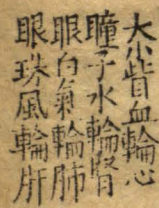 大小眥血輪心
瞳子水輪腎
眼白氣輪肺
眼珠風輪肝